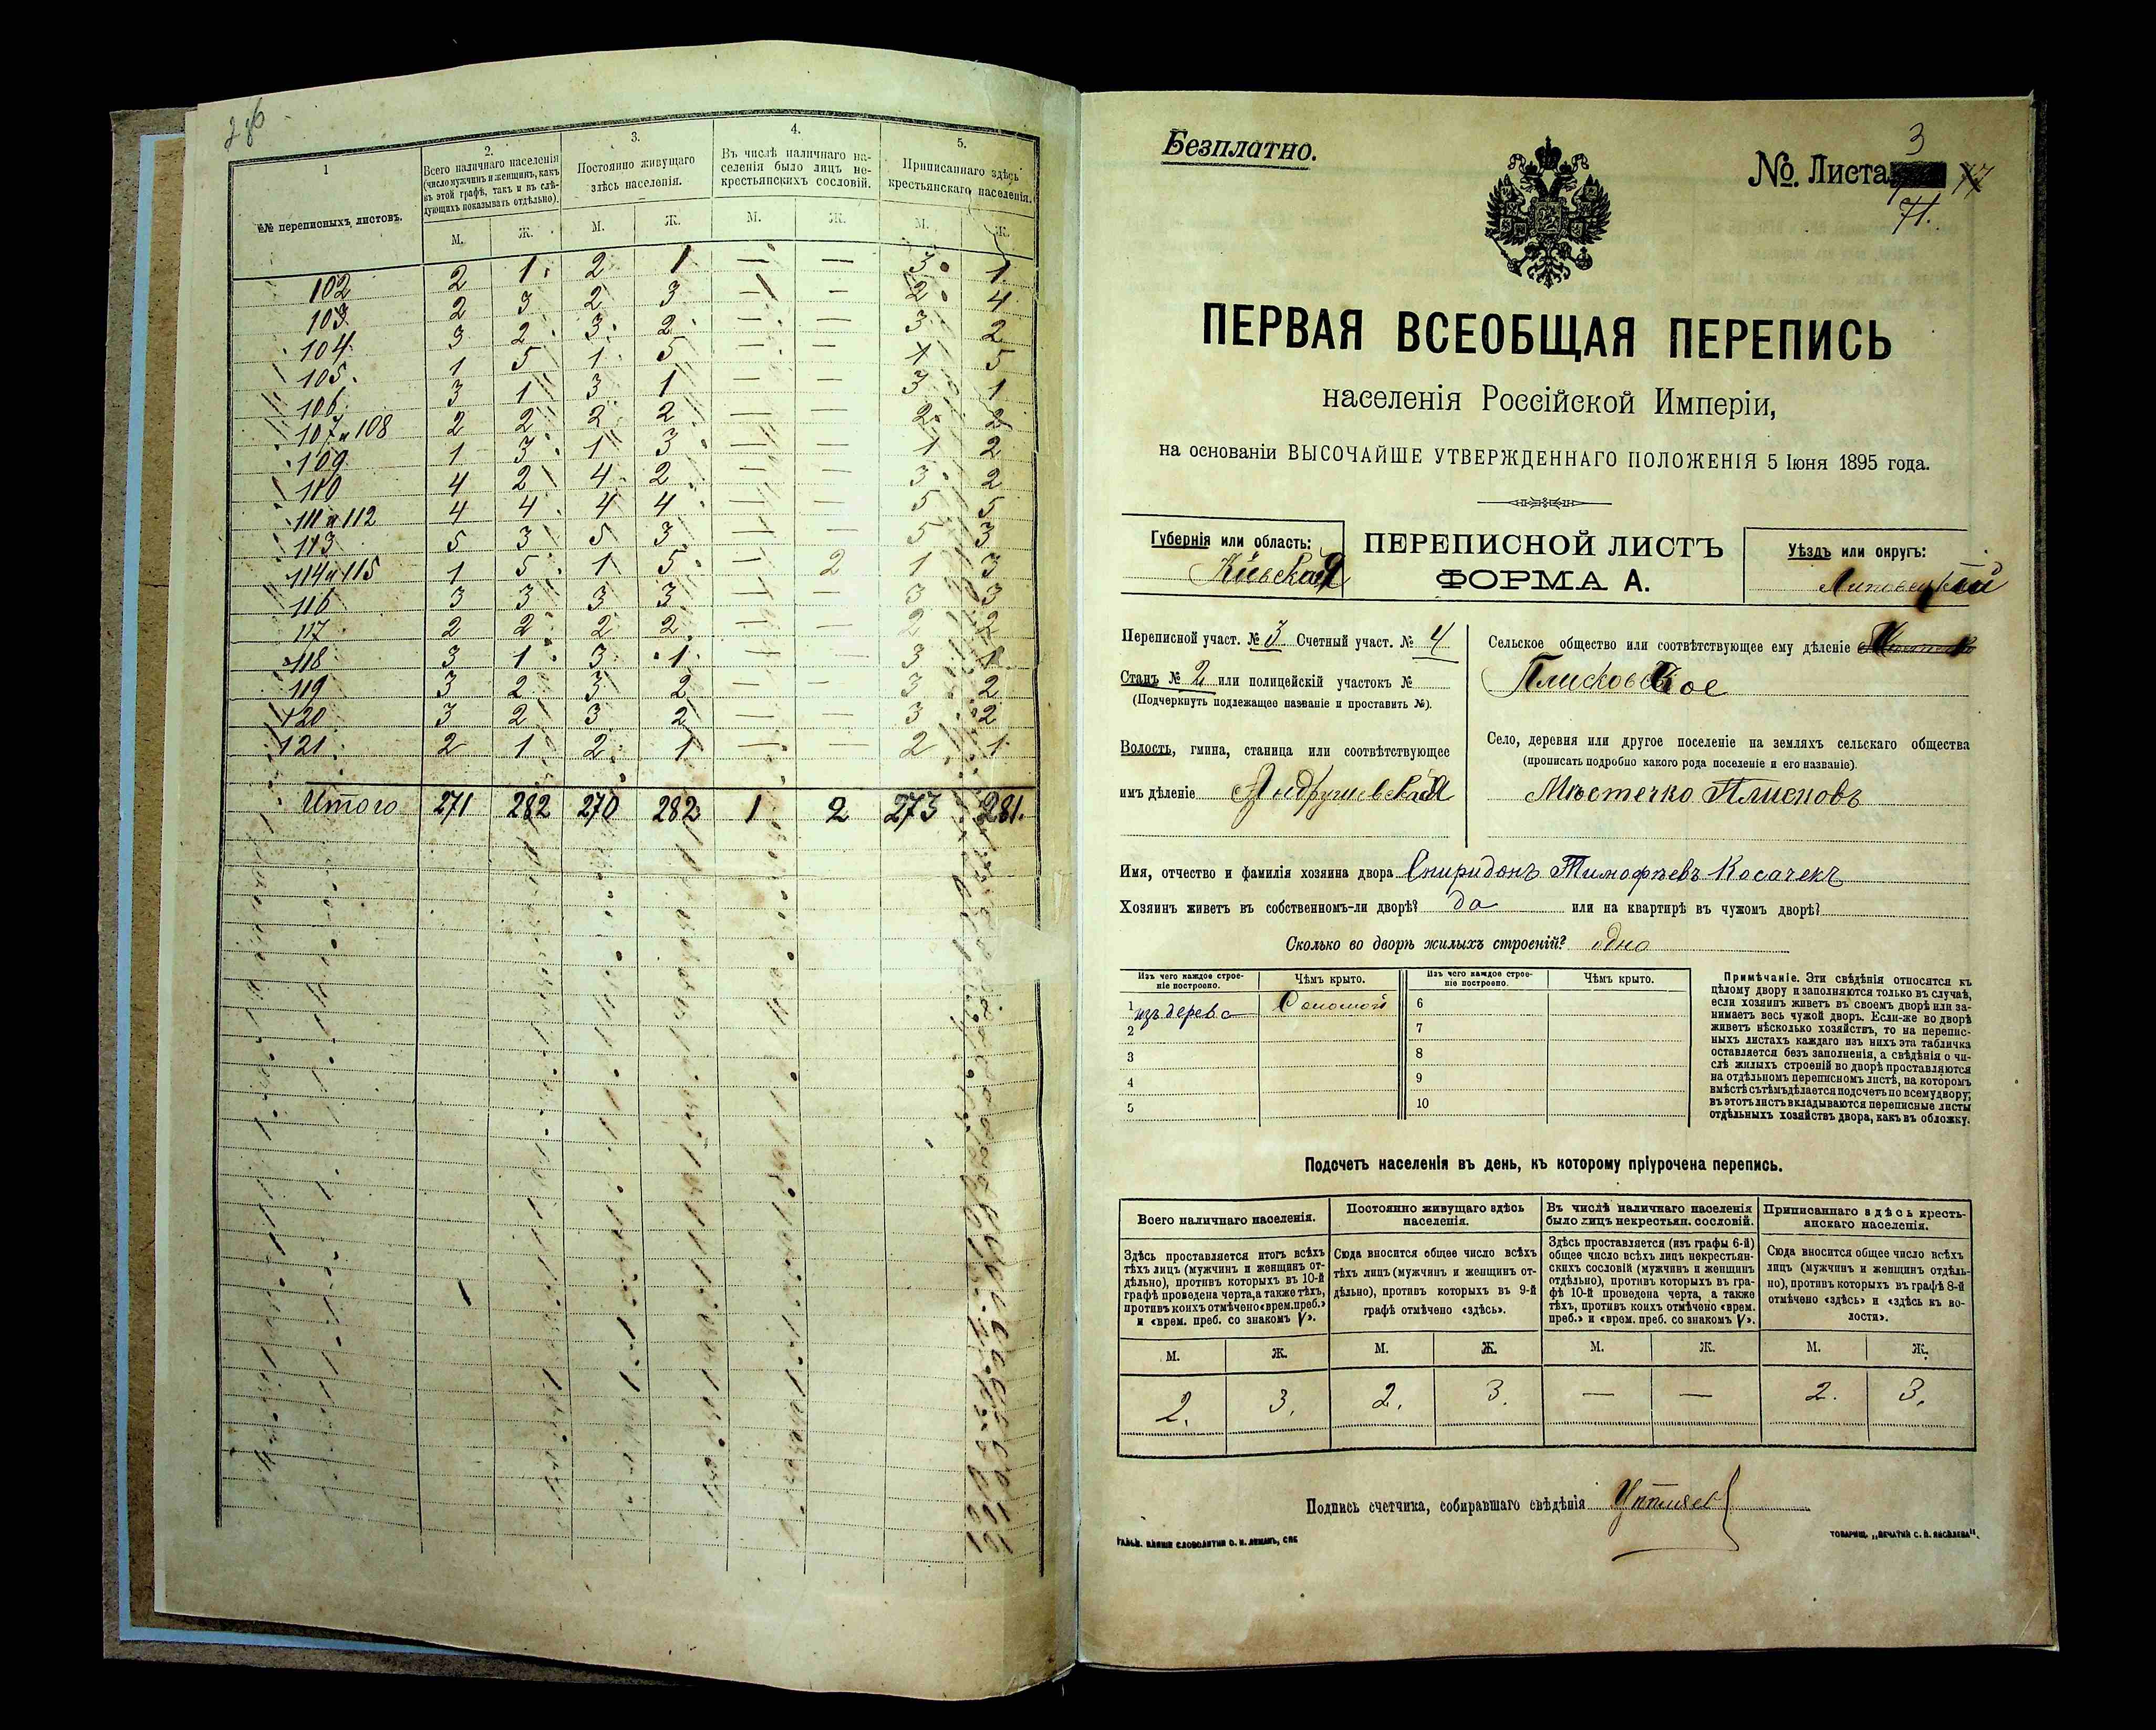 1
2.
Всего наличнаго населенія
(число мужчинъ и женщинъ, какъ
въ этой графѣ, такъ и въ слѣ-
дующихъ показывать отдѣльно).
3.
Постоянно живущаго
здѣсь населенія.
4.
Въ числѣ наличнаго на-
селенія было лицъ не-
крестьянскихъ сословій.
5.
Приписаннаго здѣсь
крестьянскаго населенія.
№№ переписныхъ листовъ.
М. Ж. М. Ж. М. Ж. М. Ж.
102 2 1 2 1 — — 3 1
103 2 3 2 3 — — 2 4
104 3 2 3 2 — — 3 2
105 1 5 1 5 — — 1 5
106 3 1 3 1 — — 3 1
107 и 108 2 2 2 2 — — 2 2
109 1 3 1 3 — — 1 2
110 4 2 4 2 — — 3 2
111 и 112 4 4 4 4 — — 5 5
113 5 3 5 3 — — 5 3
114 и 115 1 5 1 5 — 2 1 3
116 3 3 3 3 — — 3 3
117 2 2 2 2 — — 2 2
118 3 1 3 1 — — 3 1
119 3 2 3 2 — — 3 2
120 3 2 3 2 — — 3 2
121 2 1 2 1 — — 2 1
Итого 271 282 270 282 1 2 273 281.
Безплатно.
3
№. Листа
71.
ПЕРВАЯ ВСЕОБЩАЯ ПЕРЕПИСЬ
населенія Россійской Имперіи,
на основаніи ВЫСОЧАЙШЕ УТВЕРЖДЕННАГО ПОЛОЖЕНІЯ 5 Іюня 1895 года.
Губернія или область:
Кіевская
ПЕРЕПИСНОЙ ЛИСТЪ
ФОРМА А.
Уѣздъ или округъ:
Липовецкій
Переписной участ. № 3 Счетный участ. № 4
Станъ № 2 или полицейскій участокъ №
(Подчеркнуть подлежащее названіе и проставить №).
Волость, гмина, станица или соотвѣтствующее
имъ дѣленіе Андрушевская
Сельское общество или соотвѣтствующее ему дѣленіе
Плисковское
Село, деревня или другое поселеніе на земляхъ сельскаго общества
(прописать подробно какого рода поселеніе и его названіе).
Мѣстечко Плисковъ
Имя, отчество и фамилія хозяина двора Спиридонъ Тимофѣевъ Косачекъ
Хозяинъ живетъ въ собственномъ-ли дворѣ? да или на квартирѣ въ чужомъ дворѣ?
Сколько во дворѣ жилыхъ строеній? одно
Изъ чего каждое строе-
ніе построено.
Чѣмъ крыто.
Изъ чего каждое строе-
ніе построено.
Чѣмъ крыто.
1 изъ дерева Соломой 6
2 7
3 8
4 9
5 10
Примѣчаніе. Эти свѣдѣнія относятся къ
цѣлому двору и заполняются только въ случаѣ,
если хозяинъ живетъ въ своемъ дворѣ или за-
нимаетъ весь чужой дворъ. Если-же во дворѣ
живетъ нѣсколько хозяйствъ, то на перепис-
ныхъ листахъ каждаго изъ нихъ эта табличка
оставляется безъ заполненія, а свѣдѣнія о чи-
слѣ жилыхъ строеній во дворѣ проставляются
на отдѣльномъ переписномъ листѣ, на которомъ
вмѣстѣ съ тѣмъ дѣлается подсчетъ по всему двору;
въ этотъ листъ вкладываются переписные листы
отдѣльныхъ хозяйствъ двора, какъ въ обложку.
Подсчетъ населенія въ день, къ которому пріурочена перепись.
Всего наличнаго населенія.
Здѣсь проставляется итогъ всѣхъ
тѣхъ лицъ (мужчинъ и женщинъ от-
дѣльно), противъ которыхъ въ 10-й
графѣ проведена черта, а также тѣхъ,
противъ коихъ отмѣчено «врем. преб.»
и «врем. преб. со знакомъ V».
Постоянно живущаго здѣсь
населенія.
Сюда вносится общее число всѣхъ
тѣхъ лицъ (мужчинъ и женщинъ от-
дѣльно), противъ которыхъ въ 9-й
графѣ отмѣчено «здѣсь».
Въ числѣ наличнаго населенія
было лицъ некрестьян. сословій.
Здѣсь проставляется (изъ графы 6-й)
общее число всѣхъ лицъ некрестьян-
скихъ сословій (мужчинъ и женщинъ
отдѣльно), противъ которыхъ въ гра-
фѣ 10-й проведена черта, а также
тѣхъ, противъ коихъ отмѣчено «врем.
преб.» и «врем. преб. со знакомъ V».
Приписаннаго здѣсь кресть-
янскаго населенія.
Сюда вносится общее число всѣхъ
лицъ (мужчинъ и женщинъ отдѣль-
но), противъ которыхъ въ графѣ 8-й
отмѣчено «здѣсь» и «здѣсь въ во-
лости».
М. Ж. М. Ж. М. Ж. М. Ж.
2. 3. 2. 3. — — 2. 3.
Подпись счетчика, собиравшаго свѣдѣнія